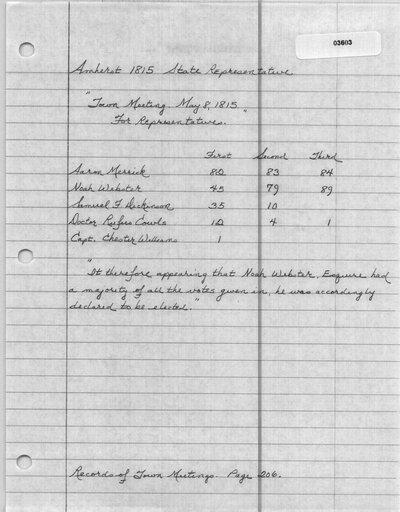 03603
Amherst 1815 State Representative
"Town Meeting. May 8, 1815.
For Representatives."
First Second Third
Aaron Merrick 80 83 84
Noah Webster 45 79 89
Samuel F Dickinson 35 10
Doctor Rufus Cowls 10 4 1
Capt. Chester Williams 1
"It therefore appearing that Noah Webster, Esquire had
a majority of all the votes given in, he was accordingly
declared to be elected."
Records of Town Meetings. Page 206.